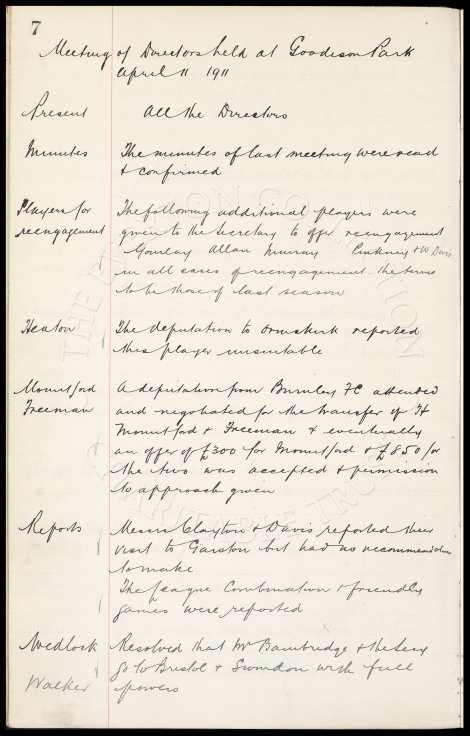 7
Meeting of Directors held at Goodison Park
April 11 1911
Present All the Directors
Minutes The minutes of last meeting were read
& confirmed
Players for The following additional players were
reengagement given to the Secretary to offer reengagement
Gourlay Allan Murray Pinkney & W Davis
in all cases of reengagement the terms
to be those of last season
Heaton The deputation to Ormskirk reported
this player unsuitable
Mountford A deputation from Burnley FC attended
Freeman and negotiated for the transfer of H
Mountford & Freeman & eventually
an offer of £300 for Mountford & £850 for
the two was accepted & permission
to approach given
Reports Messrs Clayton & Davis reported their
visit to Garston but had no recommendation
to make
The League Combination & friendly
games were reported
Wedlock Resolved that Mr Bainbridge & the Secy
go to Bristol & Swindon with full
Walker powers
THE EVERTON COLLECTION
CHARITABLE TRUST